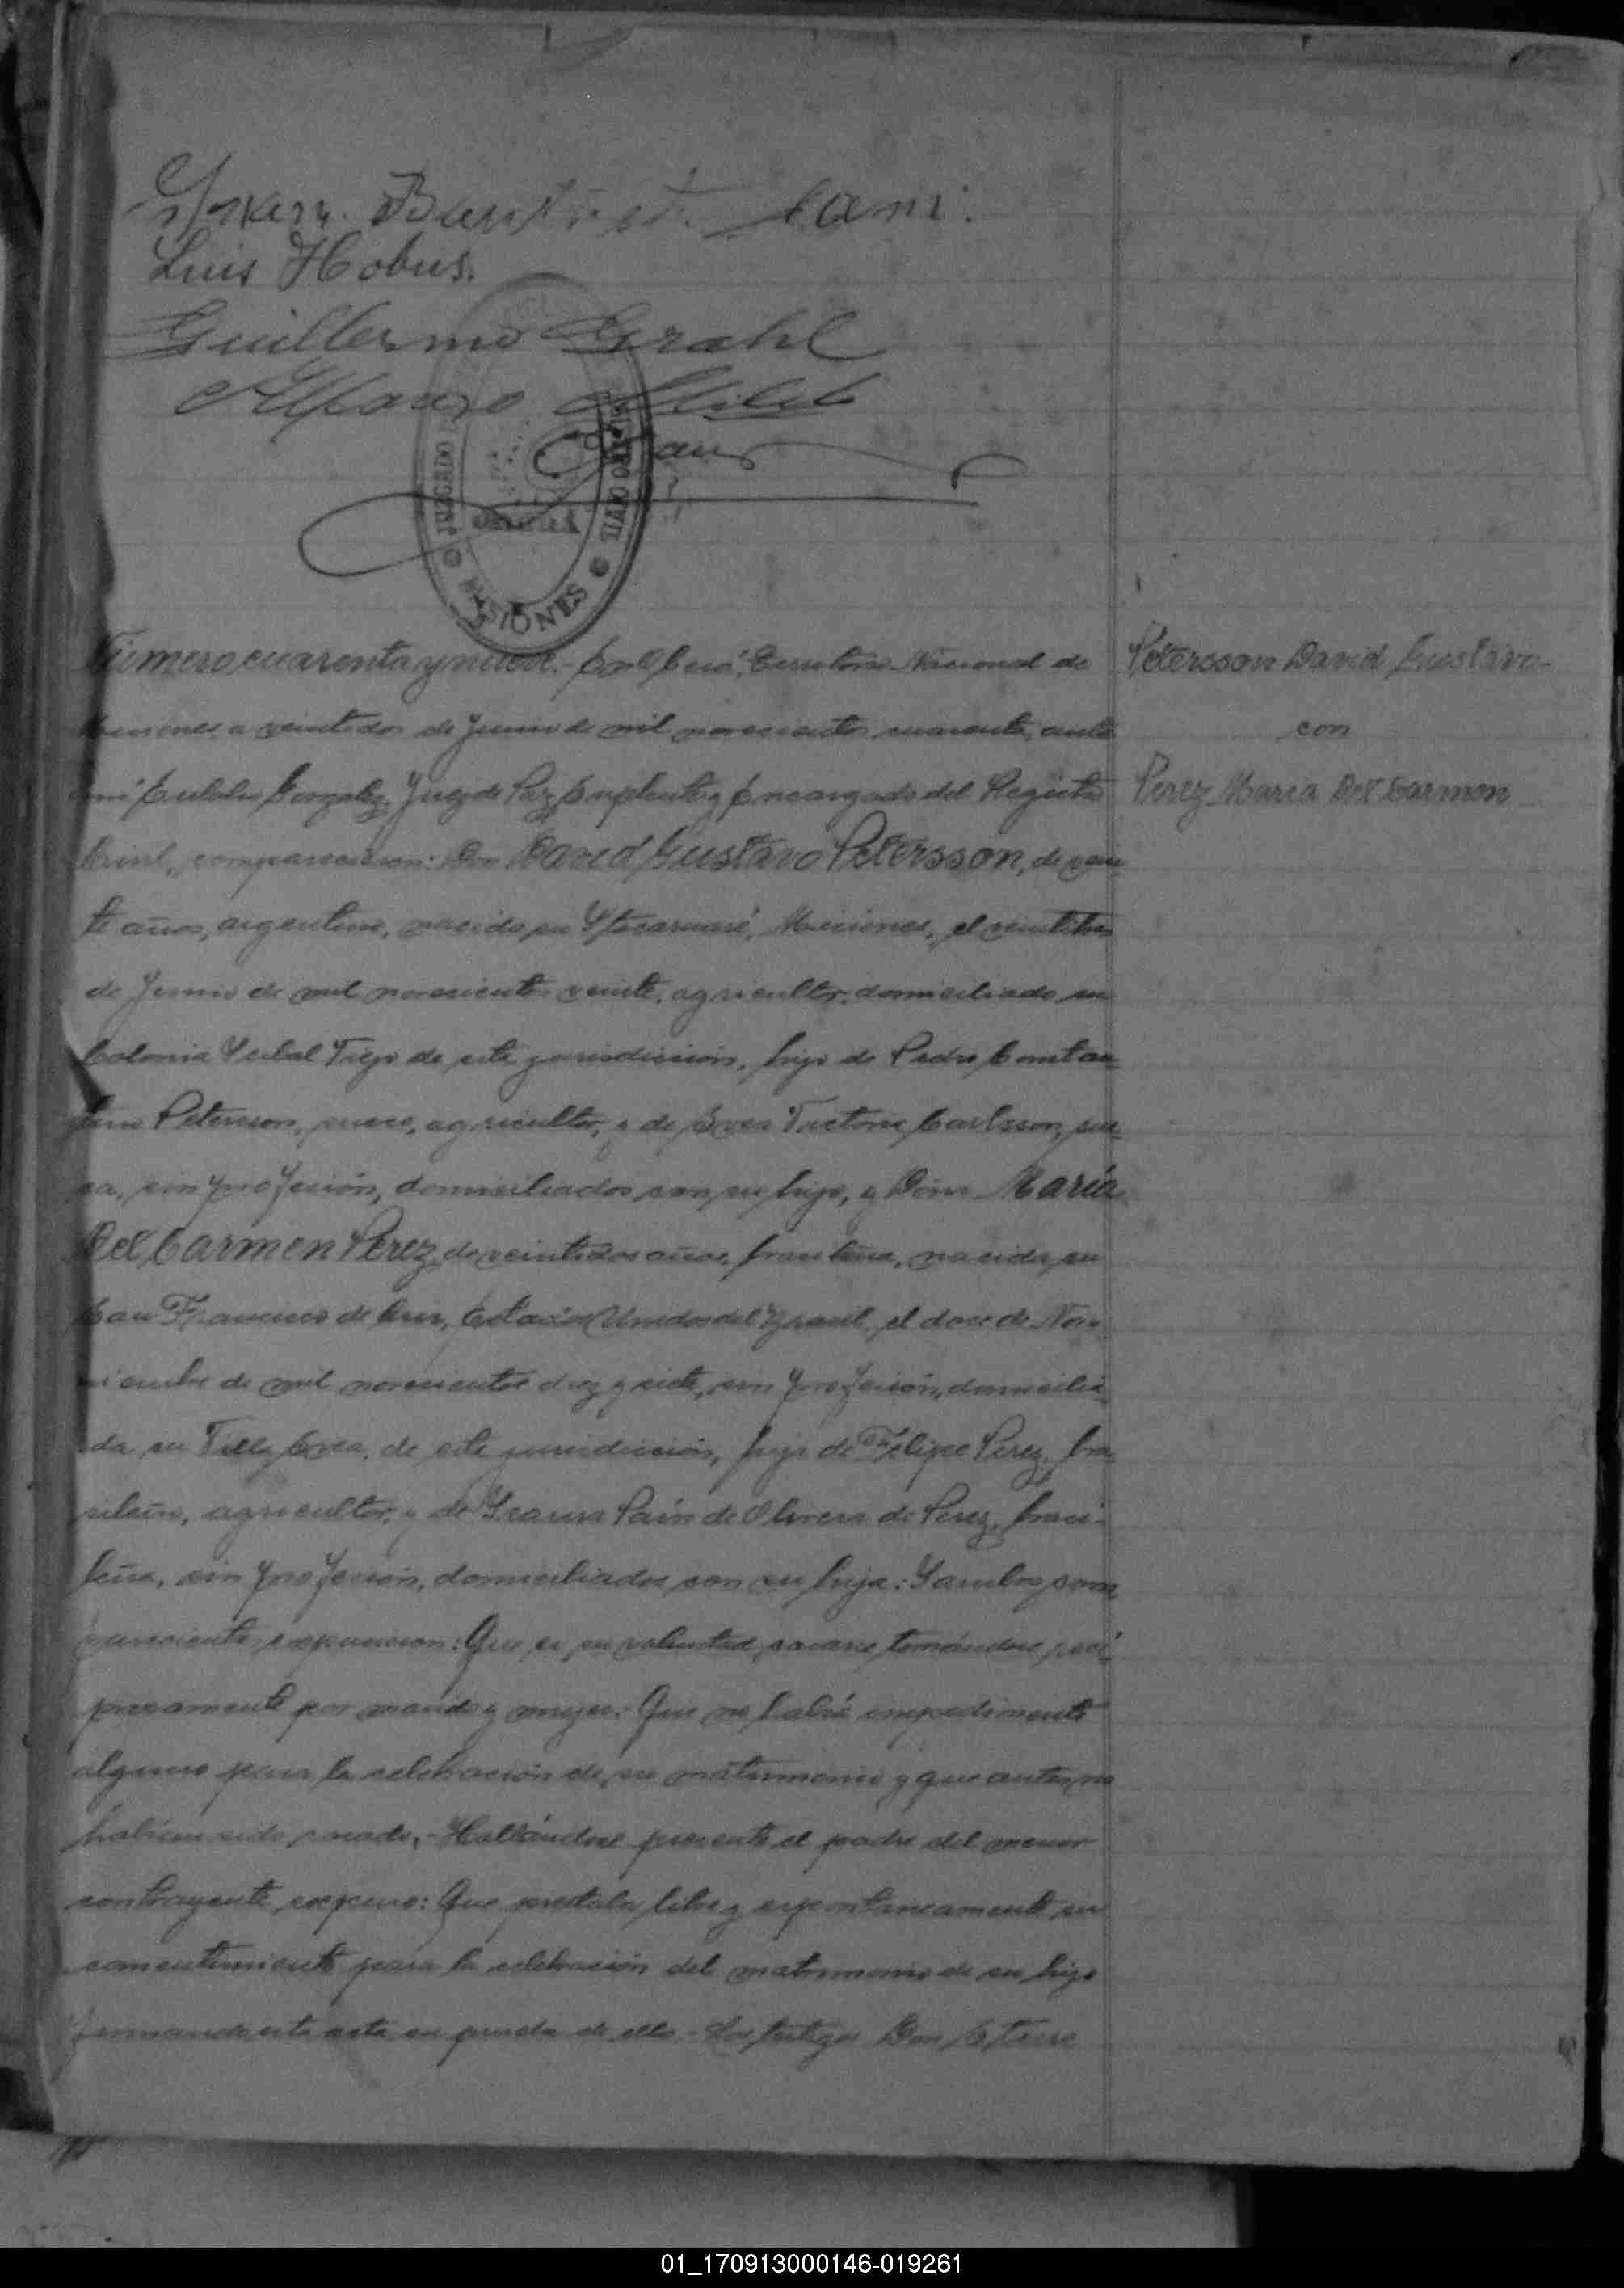 Luis Hobus.
Guillermo Grahl
JUZGADO
MISIONES
Numero cuarenta y nueve.- En Oberá, Territorio Nacional de
Misiones, a veintidos de Junio de mil novecientos cuarenta, ante
mi Gonzalez, Juez de Paz Suplente y Encargado del Registro
Civil, comparecieron: Don David Gustavo Petersson, de vein-
te años, argentino, nacido en Misiones, el veintitres
de Junio de mil novecientos veinte, agricultor, domiciliado en
Colonia Yerbal Viejo de esta jurisdicción, hijo de Pedro Constan-
tino Petersson, sueco, agricultor, y de Victoria Carlsson, sue-
ca, sin profesión, domiciliados con su hijo, y Doña María
Del Carmen Perez, de veintidos años, brasileña, nacida en
San Francisco de Asis, Estados Unidos del Brasil, el doce de Nov-
iembre de mil novecientos diez y siete, sin profesión, domicilia-
da en Villa Svea, de esta jurisdicción, hija de Felipe Perez, bra-
sileño, agricultor, y de de Olivera de Perez, brasi-
leña, sin profesión, domiciliados con su hija: Y ambos com-
parecientes expusieron: Que es su voluntad casarse tomándose recí-
procamente por marido y mujer: Que no había impedimento
alguno para la celebración de su matrimonio y que antes no
habían sido casados,- Hallándose presente el padre del menor
contrayente, expuso: Que prestaba libre y espontaneamente su
consentimiento para la celebración del matrimonio de su hijo
firmando esta acta en prueba de ello.- Los testigos Don
Petersson David Gustavo-
con
Perez Maria Del Carmen
01_170913000146-019261